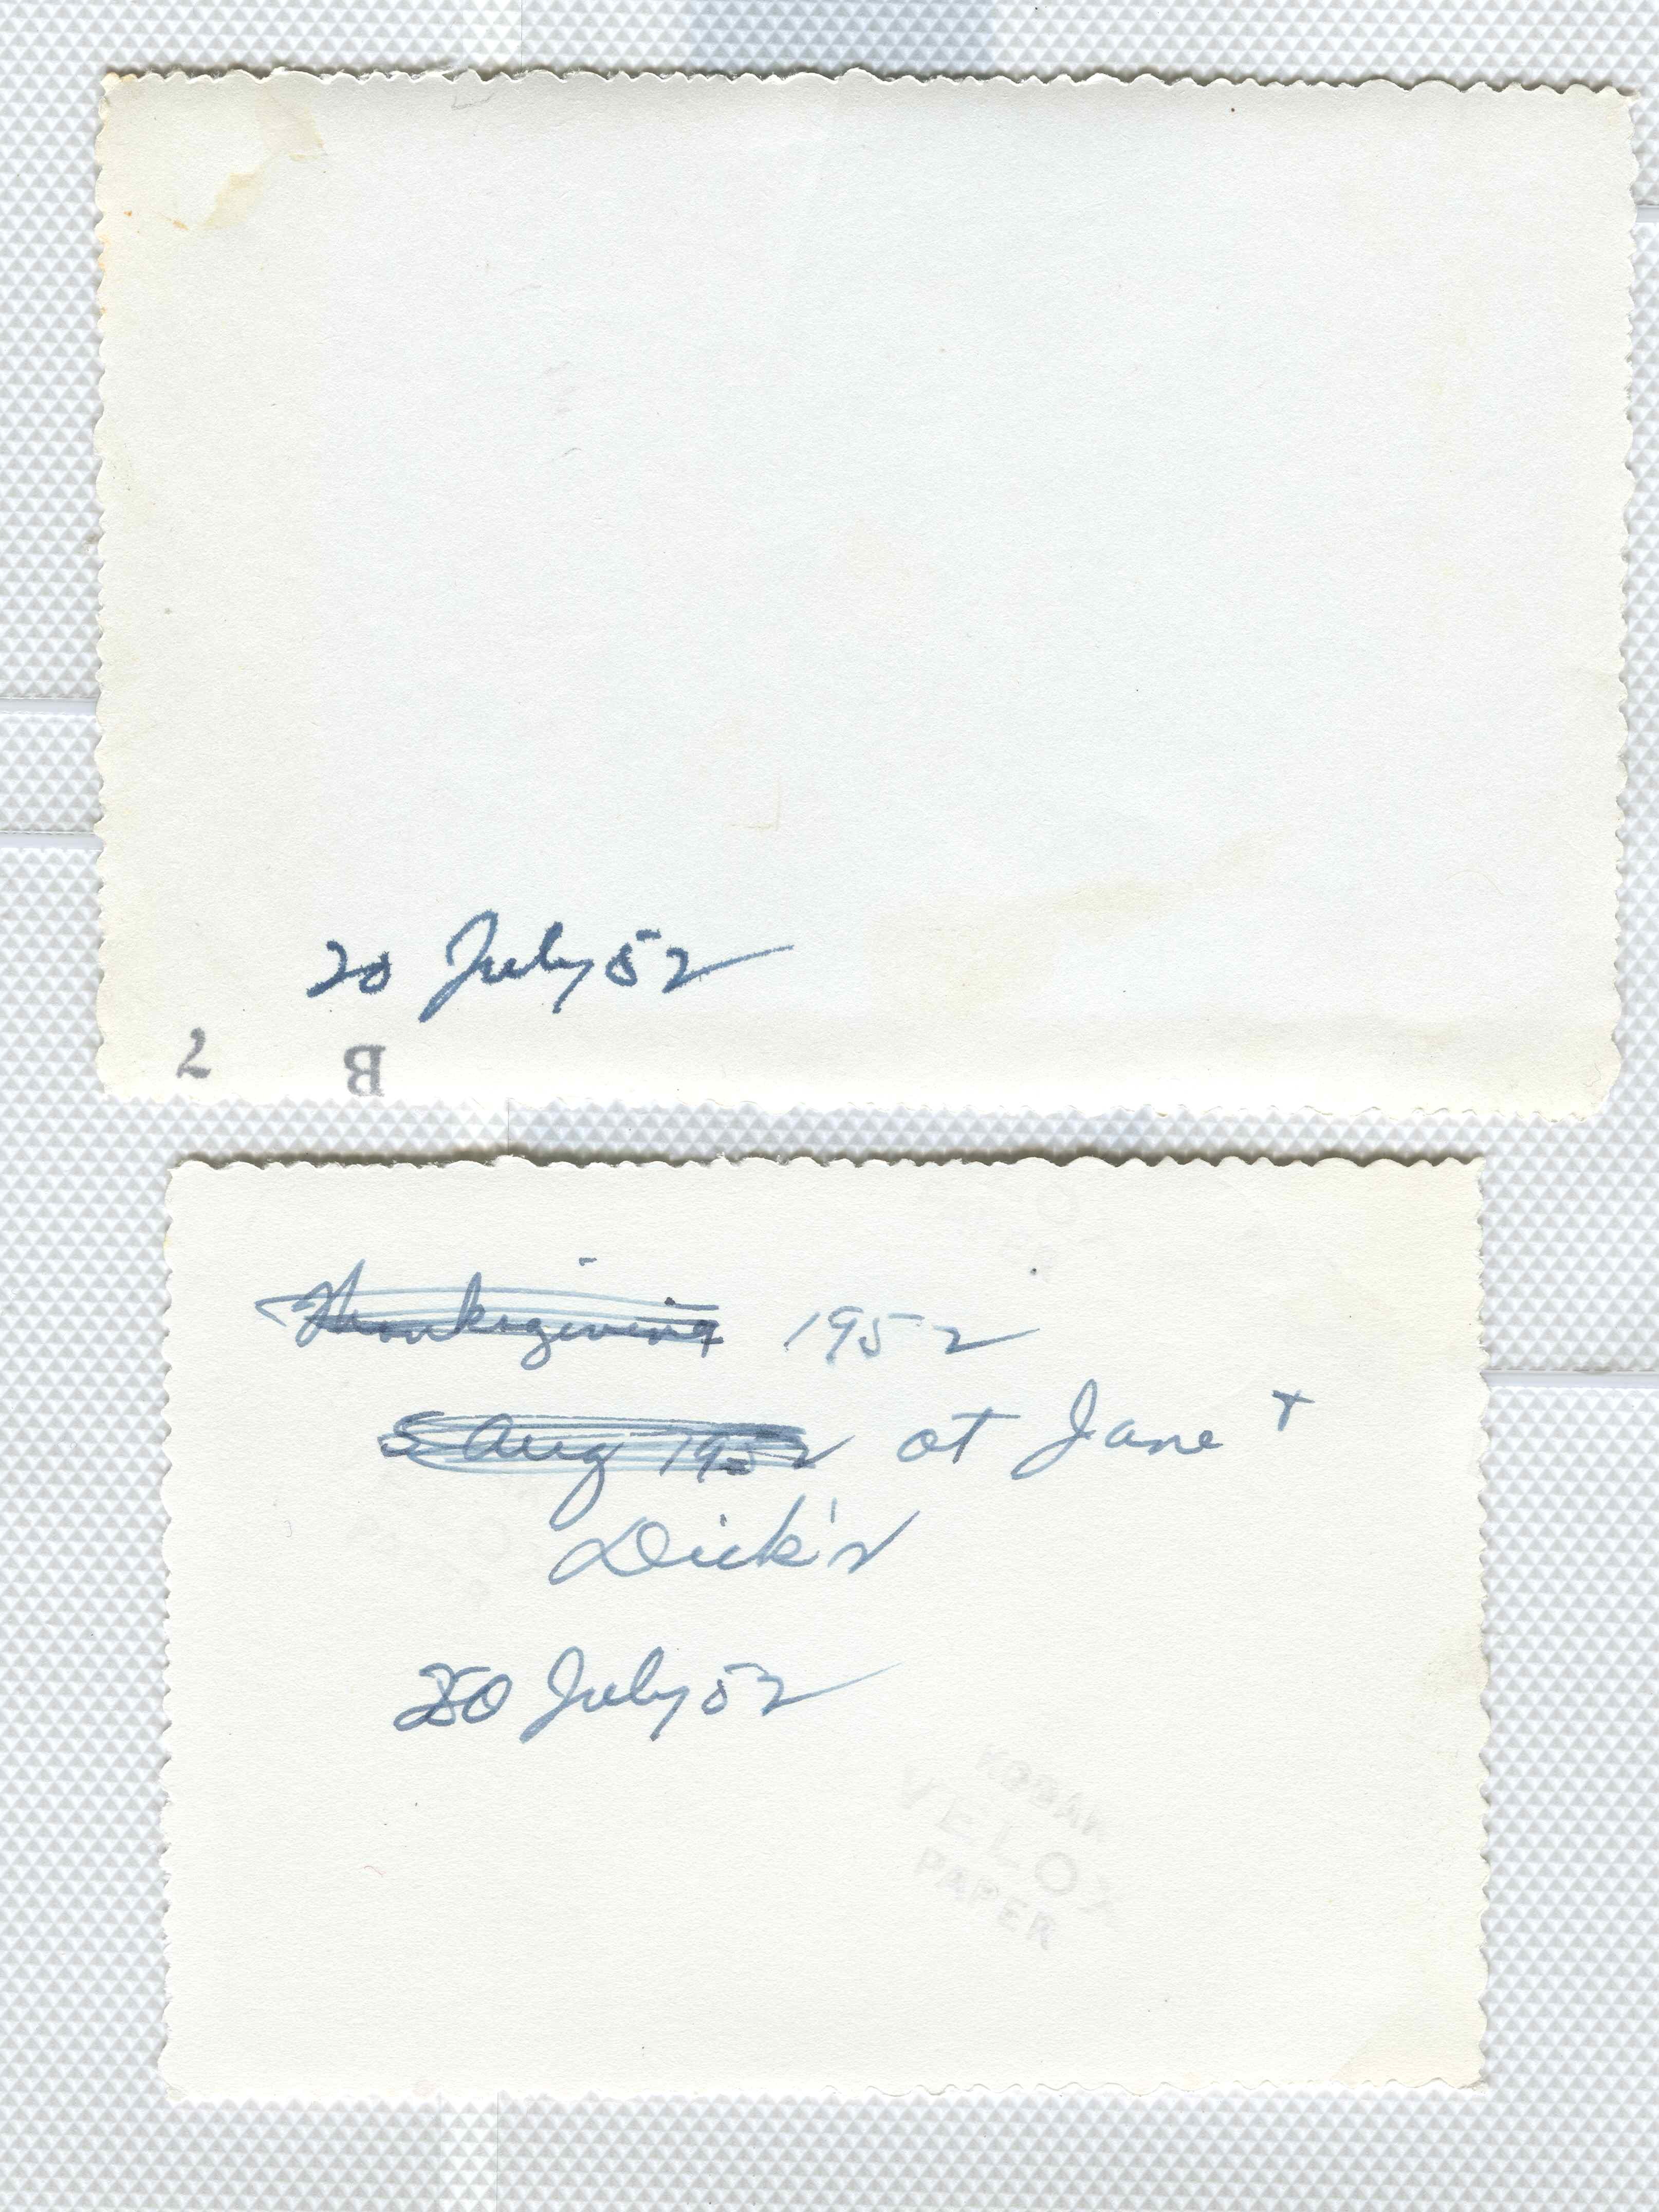 20 July 52
7
B
Thanksgiving 1952
5 Aug 1952 at Jane +
Dick's
20 July 52
KODAK
VELOX
PAPER